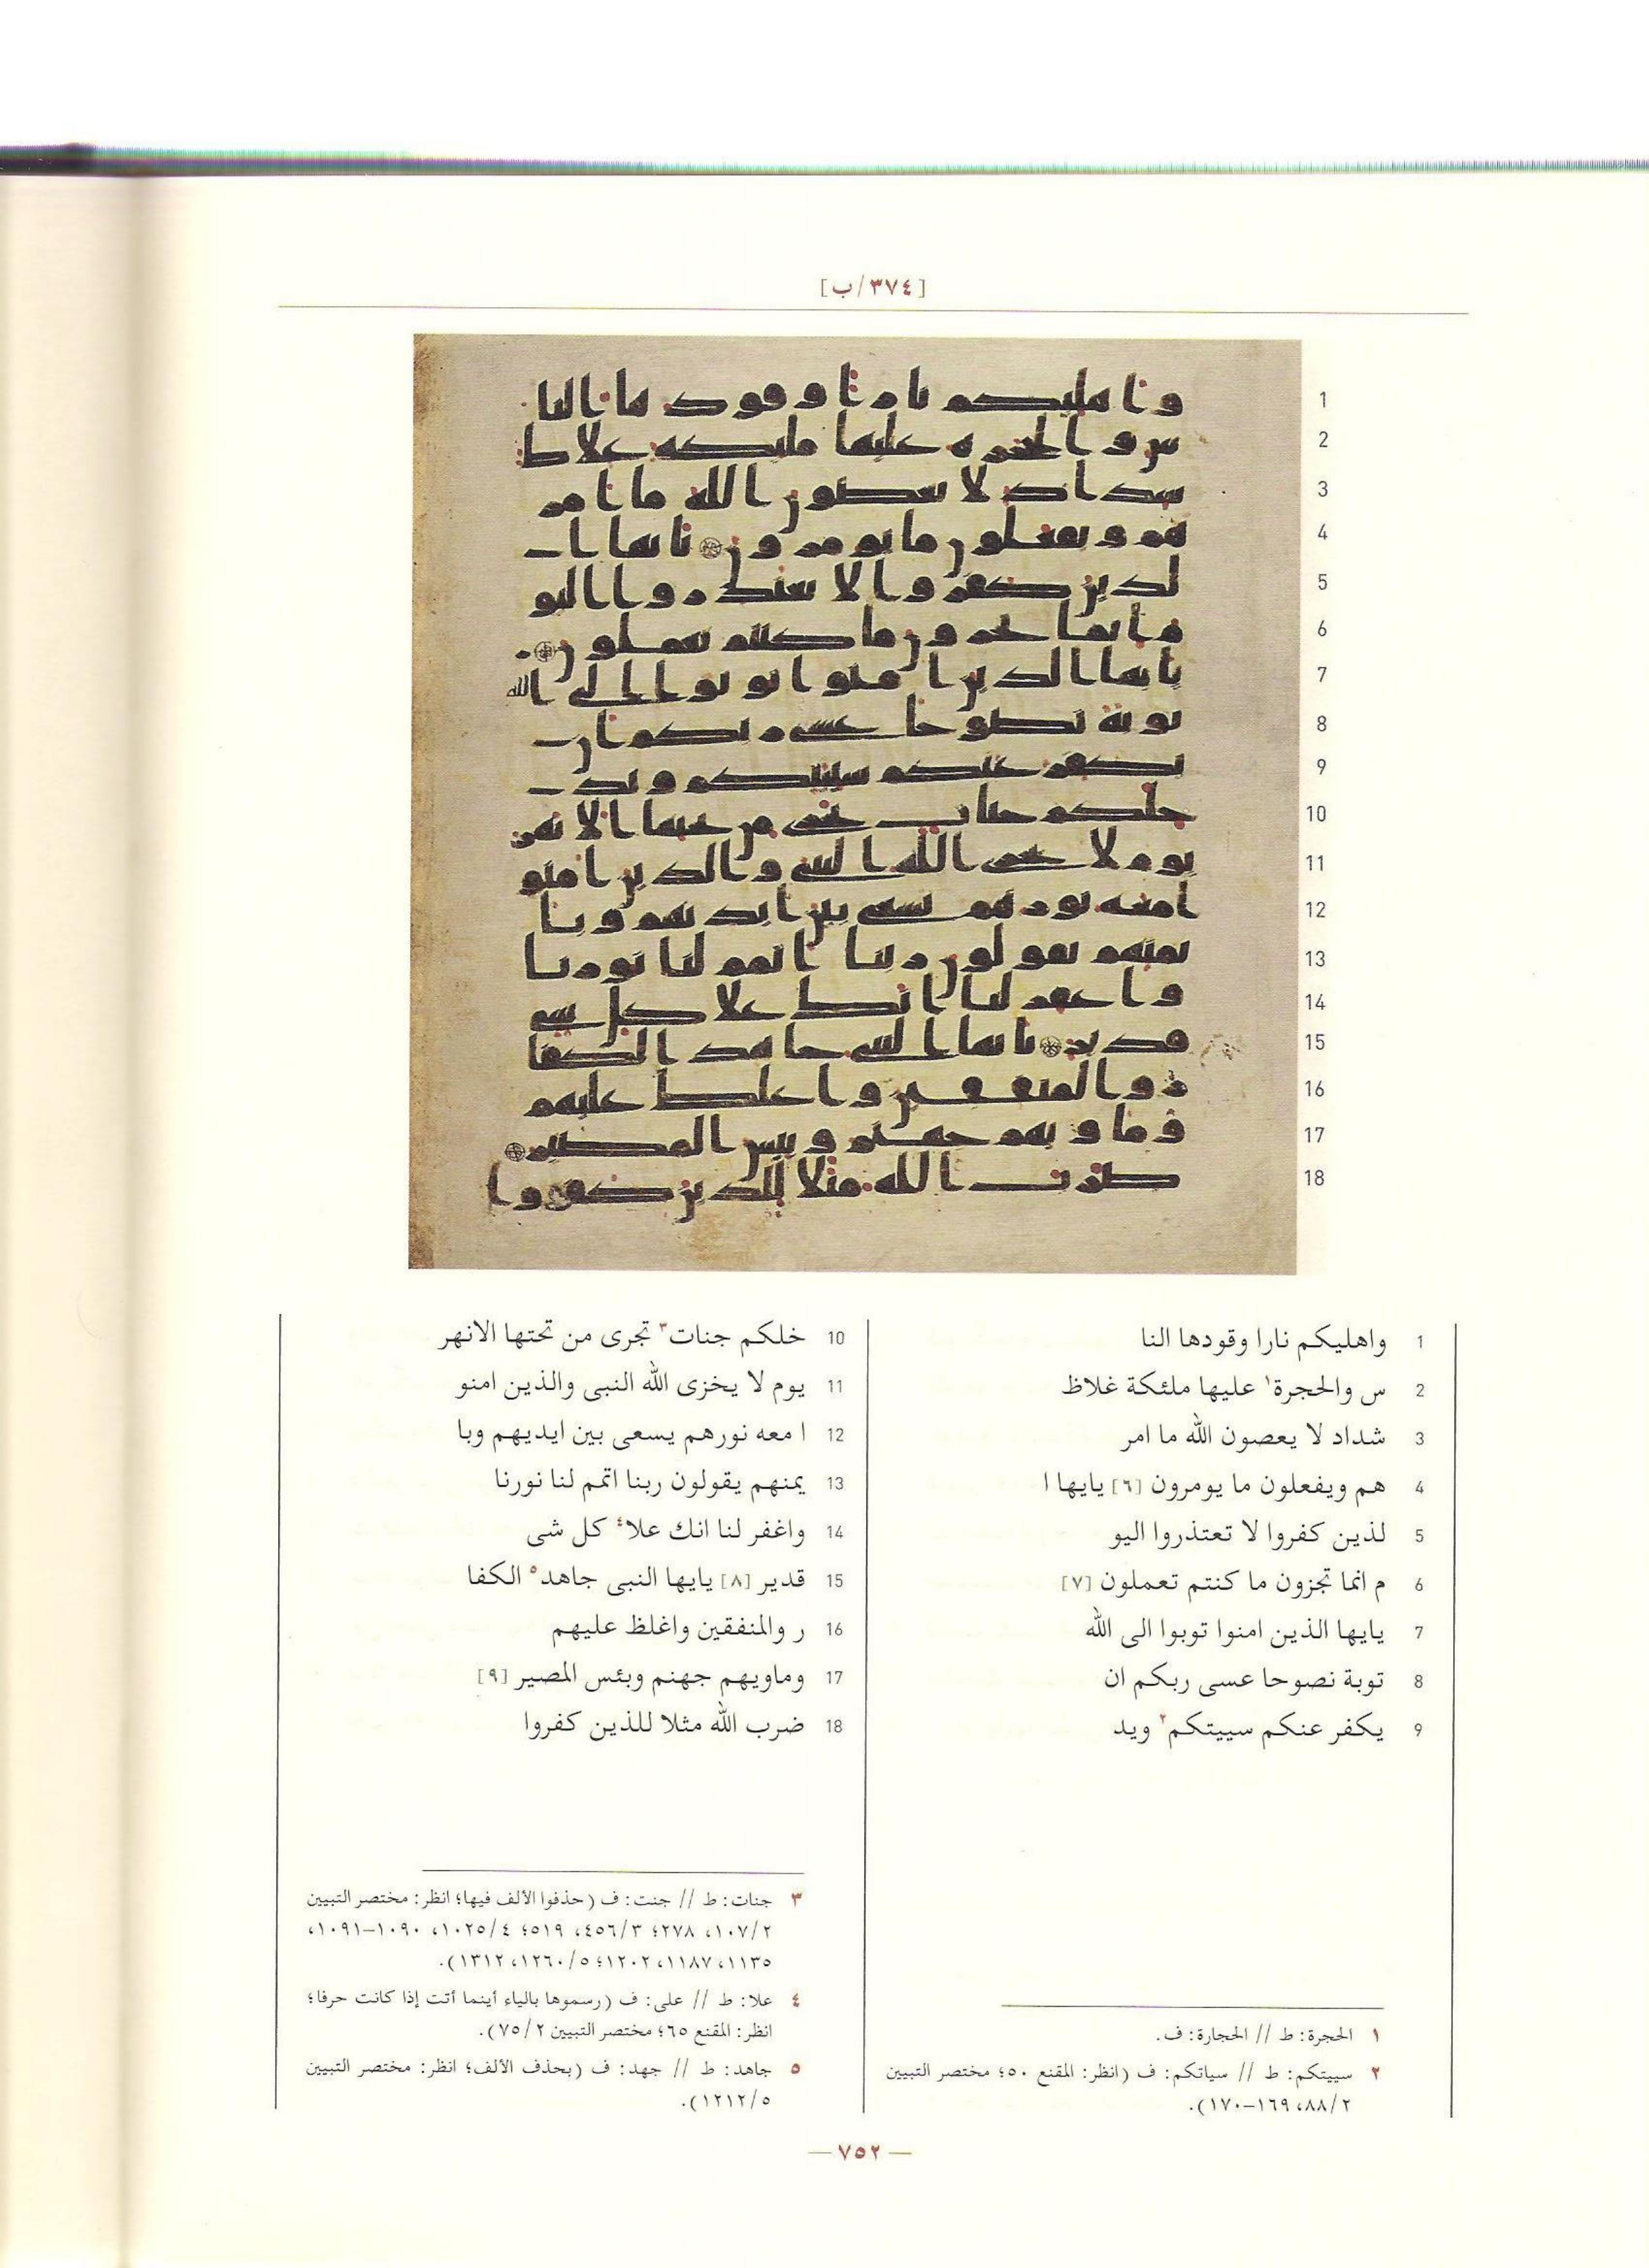 [٣٧٤/ب]
1 واهليكم نارا وقودها النا
2 س والحجرة١ عليها ملئكة غلاظ
3 شداد لا يعصون الله ما امر
4 هم ويفعلون ما يومرون [٦] يايها ا
5 لذين كفروا لا تعتذروا اليو
6 م انما تجزون ما كنتم تعملون [٧]
7 يايها الذين امنوا توبوا الى الله
8 توبة نصوحا عسى ربكم ان
9 يكفر عنكم سييتكم٢ ويد
١ الحجرة: ط // الحجارة: ف.
٢ سييتكم: ط // سياتكم: ف (انظر: المقنع ٥٠؛ مختصر التبيين
٢/٨٨، ١٦٩–١٧٠).
10 خلكم جنات٣ تجرى من تحتها الانهر
11 يوم لا يخزى الله النبى والذين امنو
12 ا معه نورهم يسعى بين ايديهم وبا
13 يمنهم يقولون ربنا اتمم لنا نورنا
14 واغفر لنا انك علا٤ كل شى
15 قدير [٨] يايها النبى جاهد٥ الكفا
16 ر والمنفقين واغلظ عليهم
17 وماويهم جهنم وبئس المصير [٩]
18 ضرب الله مثلا للذين كفروا
٣ جنات: ط // جنت: ف (حذفوا الألف فيها؛ انظر: مختصر التبيين
٢/١٠٧، ٢٧٨؛ ٣/٤٥٦، ٥١٩؛ ٤/١٠٢٥، ١٠٩٠–١٠٩١،
١١٣٥، ١١٨٧، ١٢٠٢؛ ٥/١٢٦٠، ١٣١٢).
٤ علا: ط // على: ف (رسموها بالياء أينما أتت إذا كانت حرفا؛
انظر: المقنع ٦٥؛ مختصر التبيين ٢/٧٥).
٥ جاهد: ط // جهد: ف (بحذف الألف؛ انظر: مختصر التبيين
٥/١٢١٢).
— ٧٥٢ —